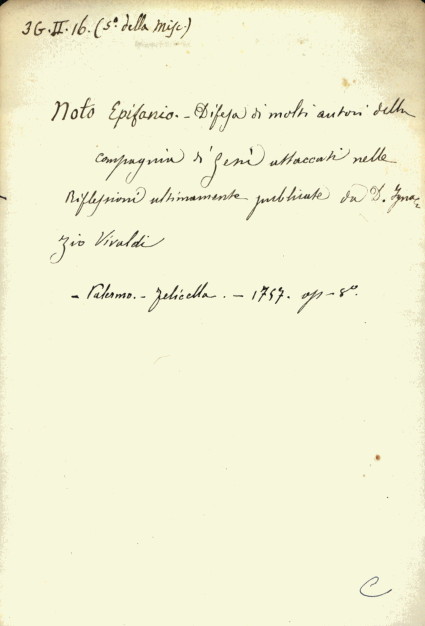 3G.II.16. (5ª. della Misc.)
Noto Epifanio. - Difesa di molti autori della
compagnia di Gesù attaccati nelle
Riflessioni ultimamente pubblicate da D. Igna=
zio Vivaldi
- Palermo. - Felicella. - 1757. op - 8º.
C